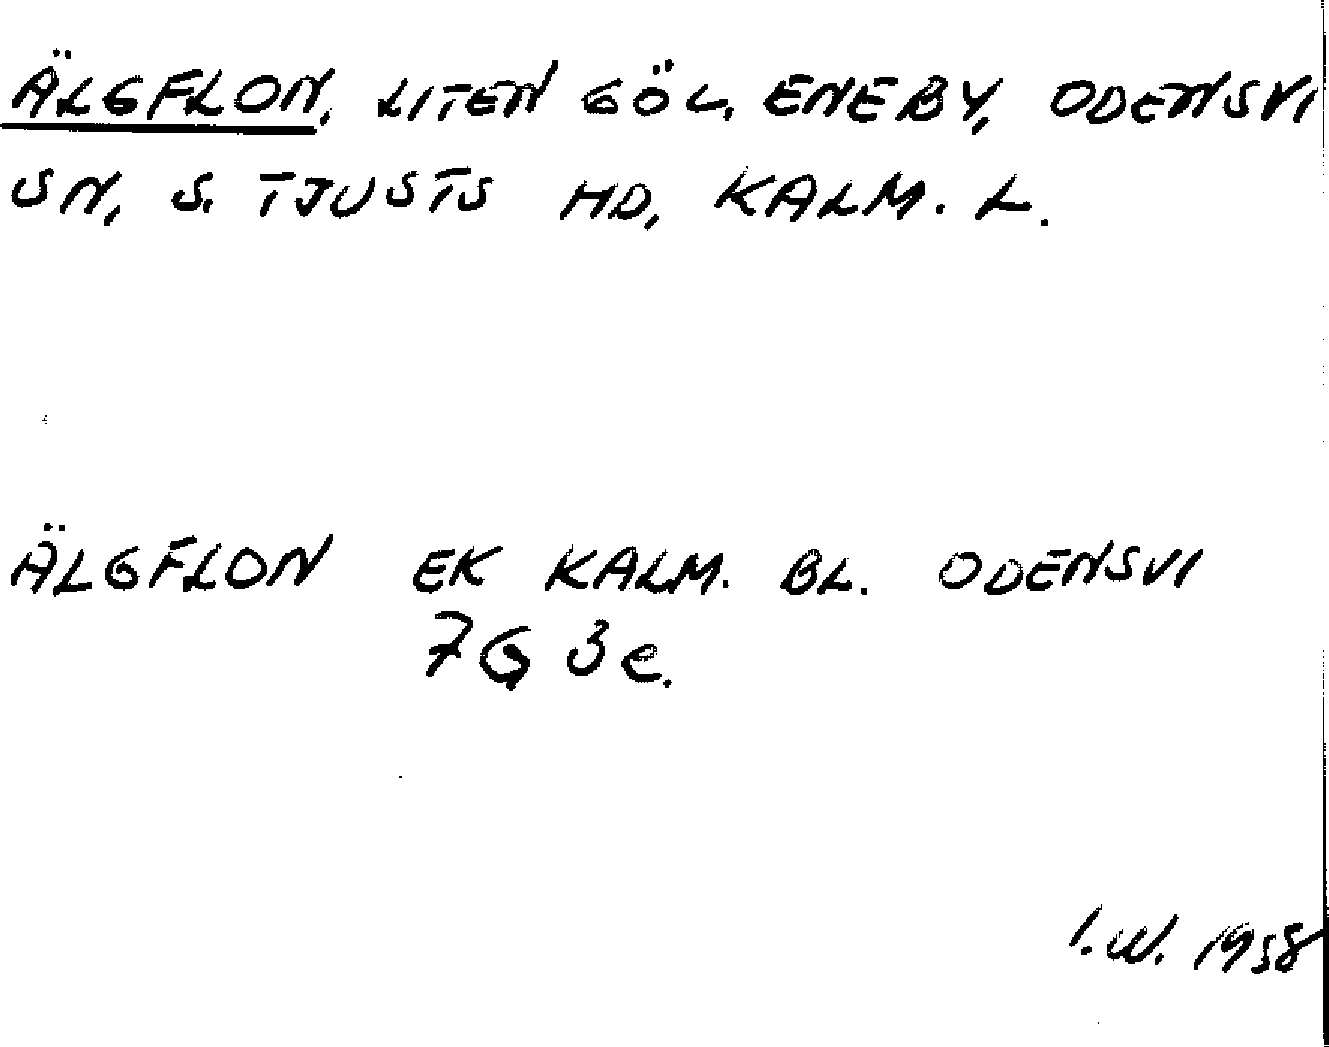 ÄLGFLON, LITEN GÖL, ENEBY, ODENSVI
SN, S. TJUSTS HD, KALM. L.
ÄLGFLON EK KALM. BL. ODENSVI
7G 3e.
I.W. 1958